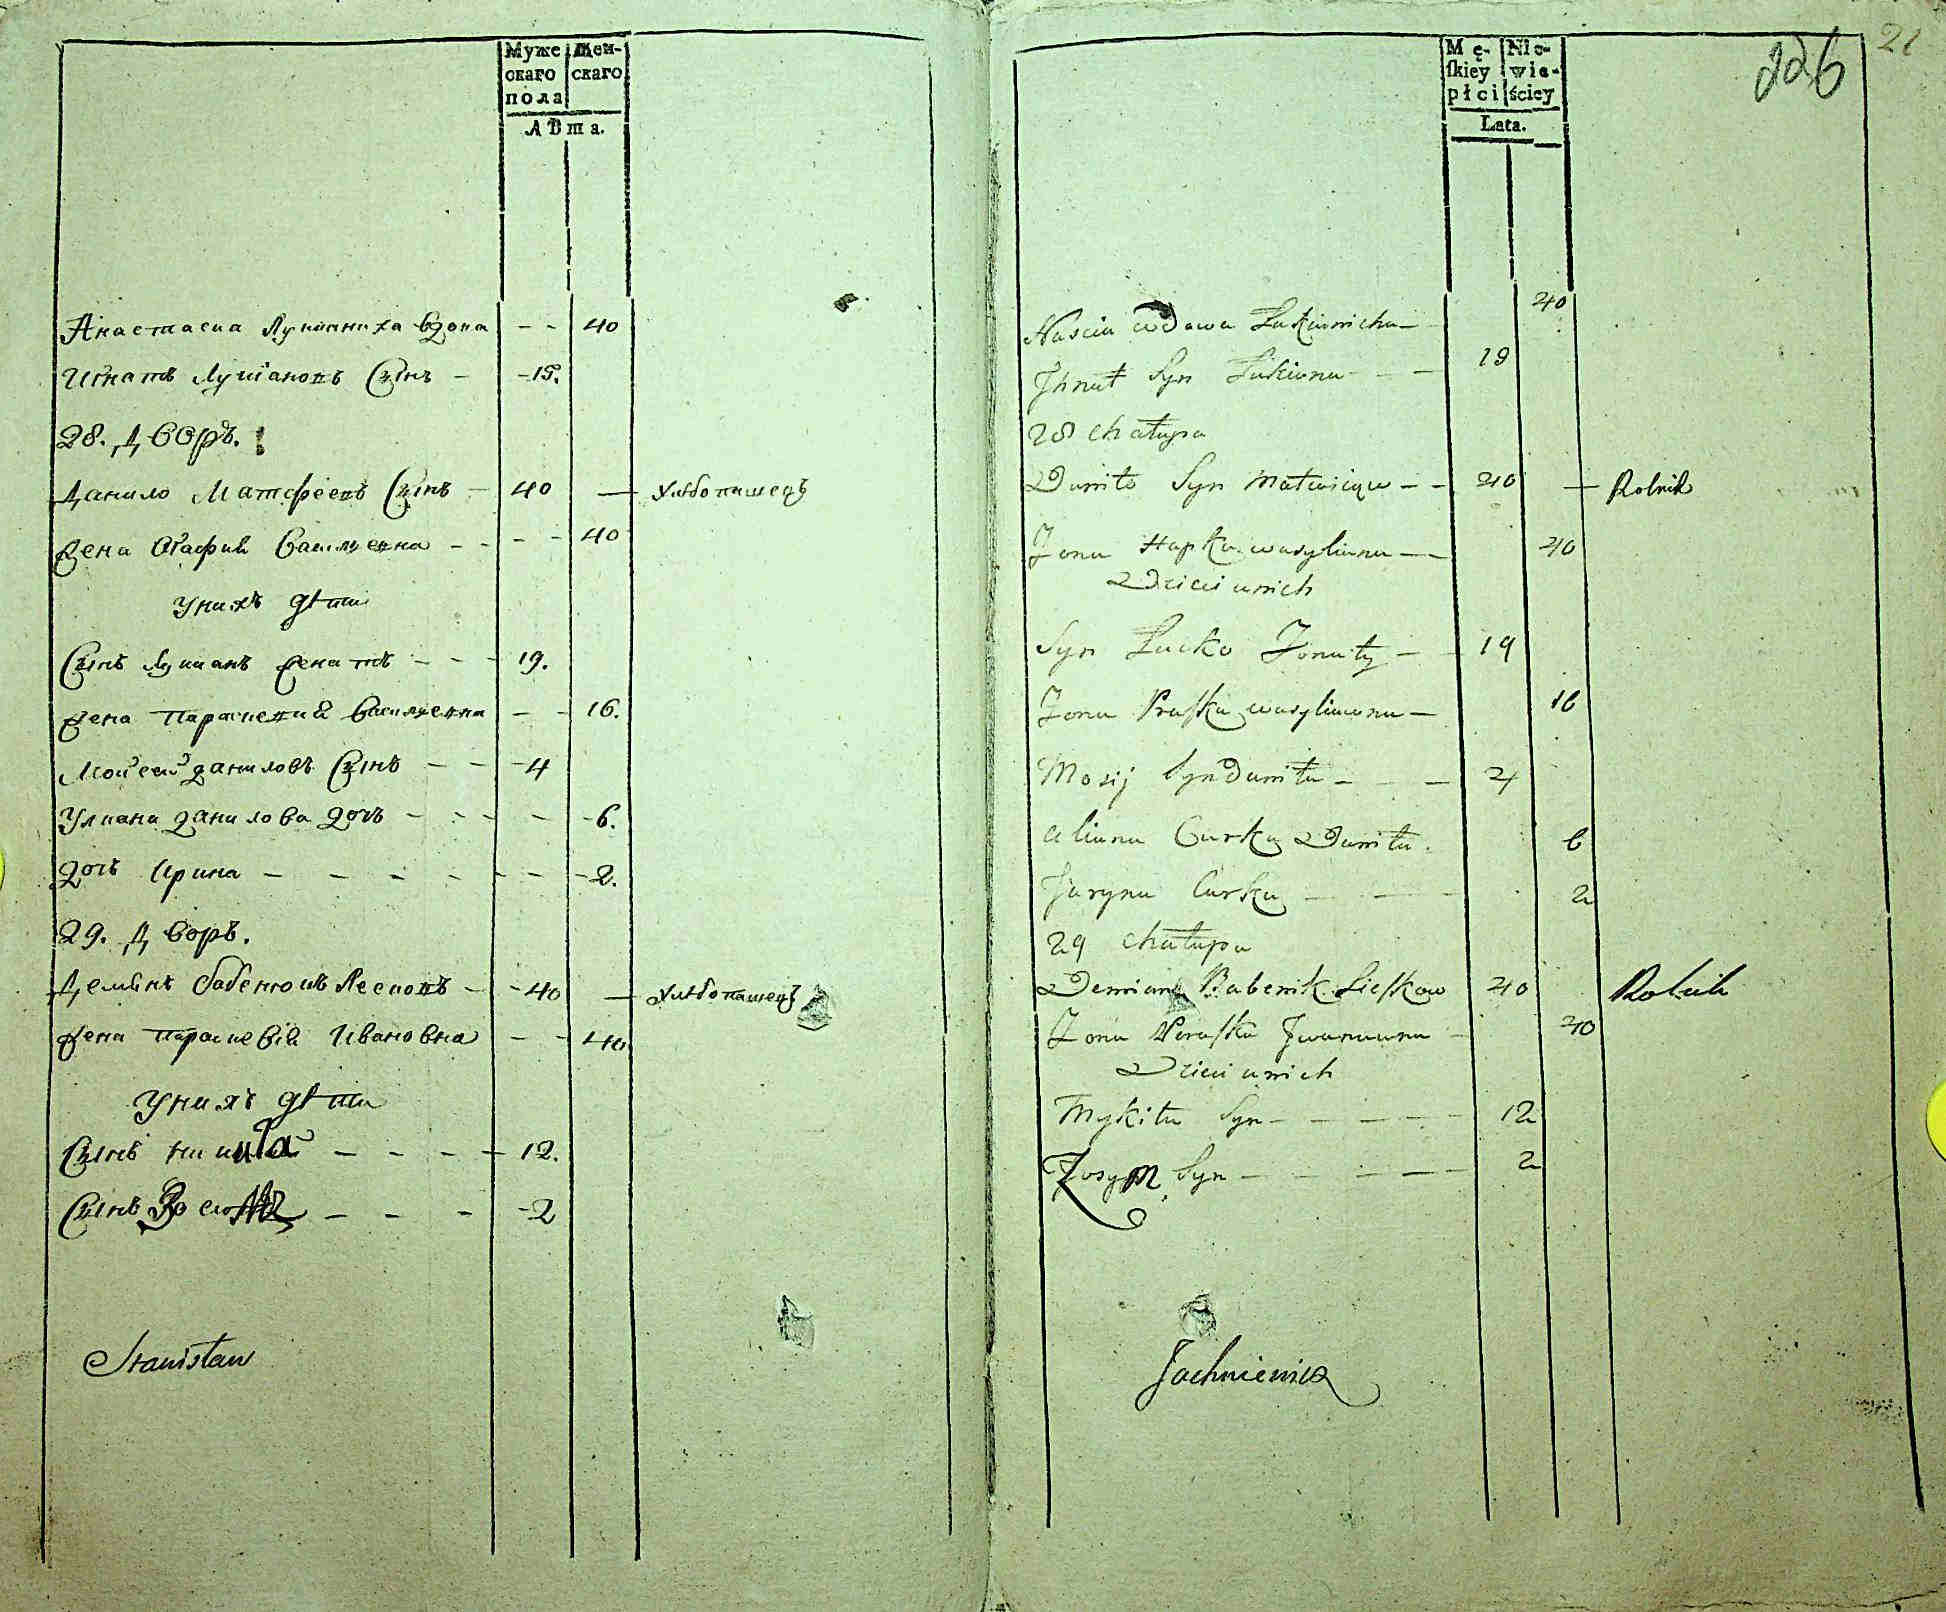 Муже
скаго
пола
Жен-
скаго
Лѣта.
Анастасиа Лукианиха вдова - - 40
Игнатъ Лукіановъ Сынъ - - 15.
28. Дворъ.
Данило Матфеевъ Сынъ - 40 — хлѣбопашецъ
жена Агафия Василиевна - - - - 40
У нихъ дѣти
Сынъ Лукианъ женатъ - - - 19.
жена Параскевия Василиевна - - 16.
Моисей Даниловъ Сынъ - - - 4
Улиана Данилова дочь - - - - - 6.
дочь Ирина - - - - - - - - 2.
29. Дворъ.
Демянъ Бабенковъ Лесковъ - - 40 — хлѣбопашецъ
жена Параскевія Ивановна - - 40
У нихъ дѣти
Сынъ Никита - - - - - 12.
Сынъ - - - - 2
Stanisław
226
21
Mę-
ſkiey
płci
Nie-
wie-
ściey
Lata.
Nascia wdowa Łukianicha — 40
Jhnat Syn Łukiana - - — 19
28 Chałupa
Daniło Syn Matwiejow — — 40 — Rolnik
Żona Hapka wasyliowna — — 40
Dzieci u nich
Syn Łucko Żonaty — - 19
Żona Praſka wasyliowna — 16
Mosij Syn Daniła - - — 4
Uliana Curka Daniła. 6
Jaryna Curka - - - 2
29 Chałupa
Demian Babenik Lieſkow 40 Rolnik
Żona Paraſka Jwanowna - 40
Dzieci u nich
Mykita Syn - - - - - 12
Zosym Syn - - - - — 2
Jachniewicz